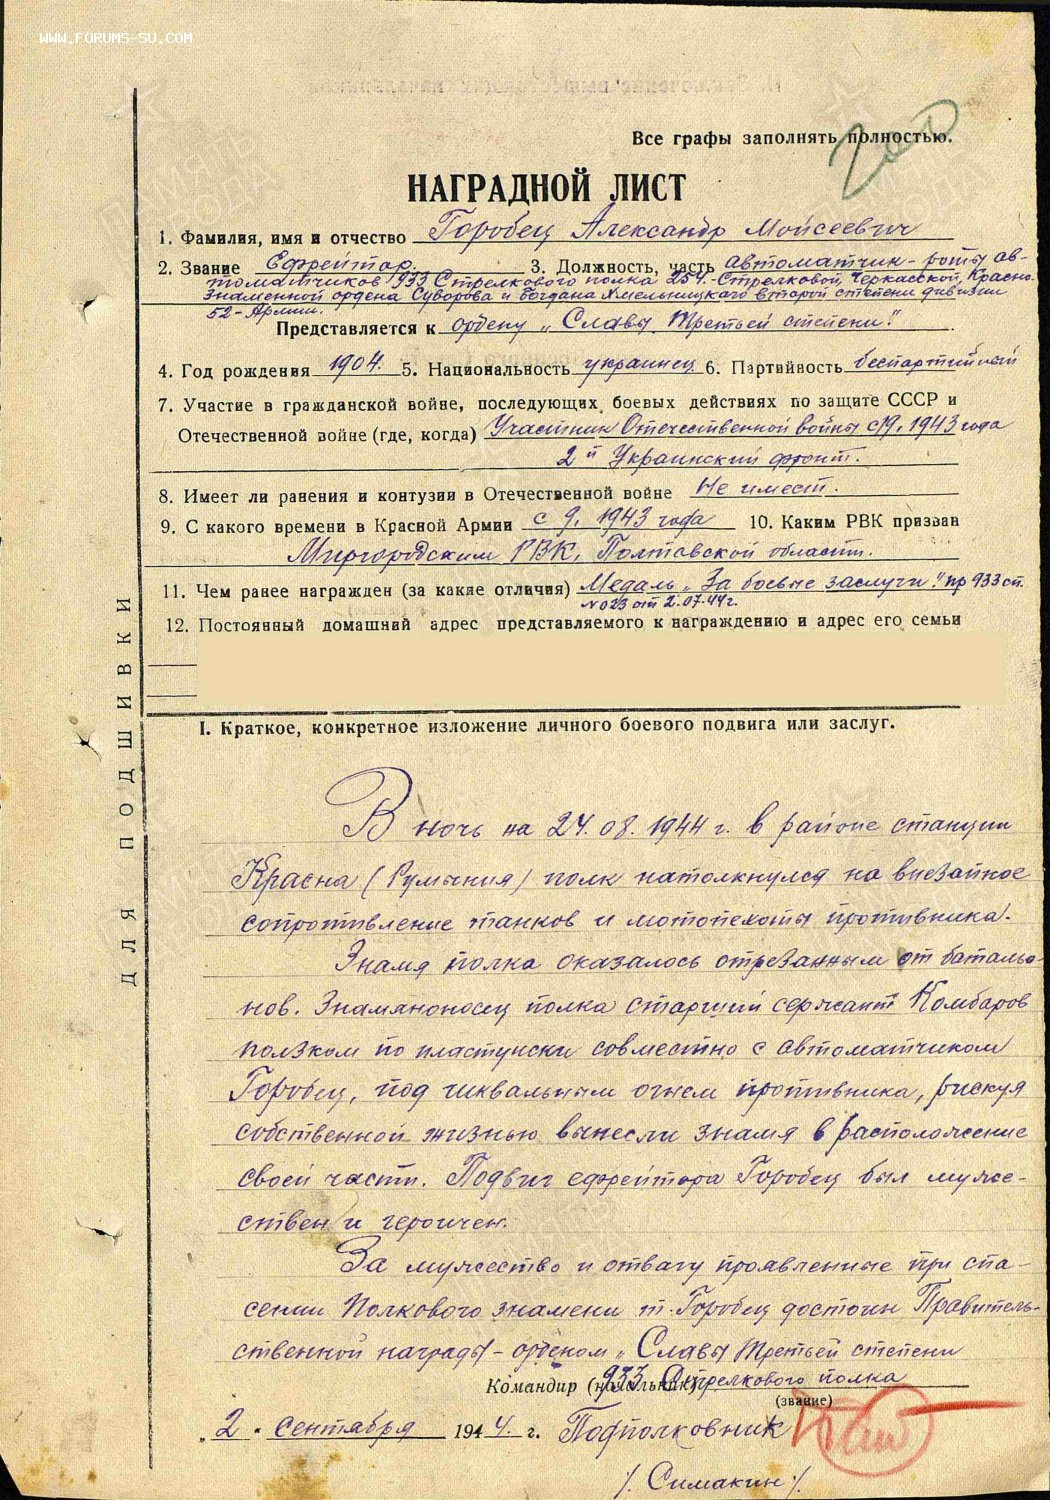 WWW.FORUMS-SU.COM
Все графы заполнять полностью.
НАГРАДНОЙ ЛИСТ
1. Фамилия, имя и отчество Горобец Александр Мойсеевич
2. Звание Ефрейтор 3. Должность, часть автоматчик роты ав-
томатчиков 933 Стрелкового полка 254-Стрелковой, Черкасской, Красно-
Знаменной ордена Суворова и Богдана Хмельницкого второй степени дивизии
52-Армии.
Представляется к ордену „Славы Третьей степени."
4. Год рождения 1904. 5. Национальность украинец 6. Партийность беспартийный
7. Участие в гражданской войне, последующих боевых действиях по защите СССР и
Отечественной войне (где, когда) Участник Отечественной войны с 19. 1943 года
2й Украинский фронт.
8. Имеет ли ранения и контузии в Отечественной войне Не имеет.
9. С какого времени в Красной Армии с 9. 1943 года 10. Каким РВК призван
Миргородским РВК, Полтавской области.
11. Чем ранее награжден (за какие отличия) Медаль „За боевые заслуги" пр 933 сп.
№ 023 от 2.07.44г.
12. Постоянный домашний адрес представляемого к награждению и адрес его семьи
I. Краткое, конкретное изложение личного боевого подвига или заслуг.
В ночь на 24.08.1944 г. в районе станции
Красна (Румыния) полк натолкнулся на внезапное
сопротивление танков и мотопехоты противника.
Знамя полка оказалось отрезанным от батальо-
нов. Знаманоносец полка старший сержант Комбаров
ползком по пластунски совместно с автоматчиком
Горобец, под шквальным огнем противника, рискуя
собственной жизнью вынесли знамя в расположение
своей части. Подвиг ефрейтора Горобец был муже-
ствен и героичен.
За мужество и отвагу проявленные при спа-
сении Полкового знамени т. Горобец достоин Правитель-
ственной награды - орденом „Славы Третьей степени
Командир (начальник) 933 Стрелкового полка
(звание)
„2" сентября 1944 г. Подполковник
/Симакин/
ДЛЯ ПОДШИВКИ